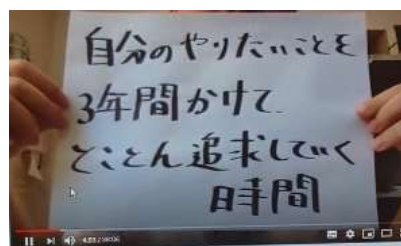 自分のやりたいことを
3年間かけて
とことん追求していく
時間